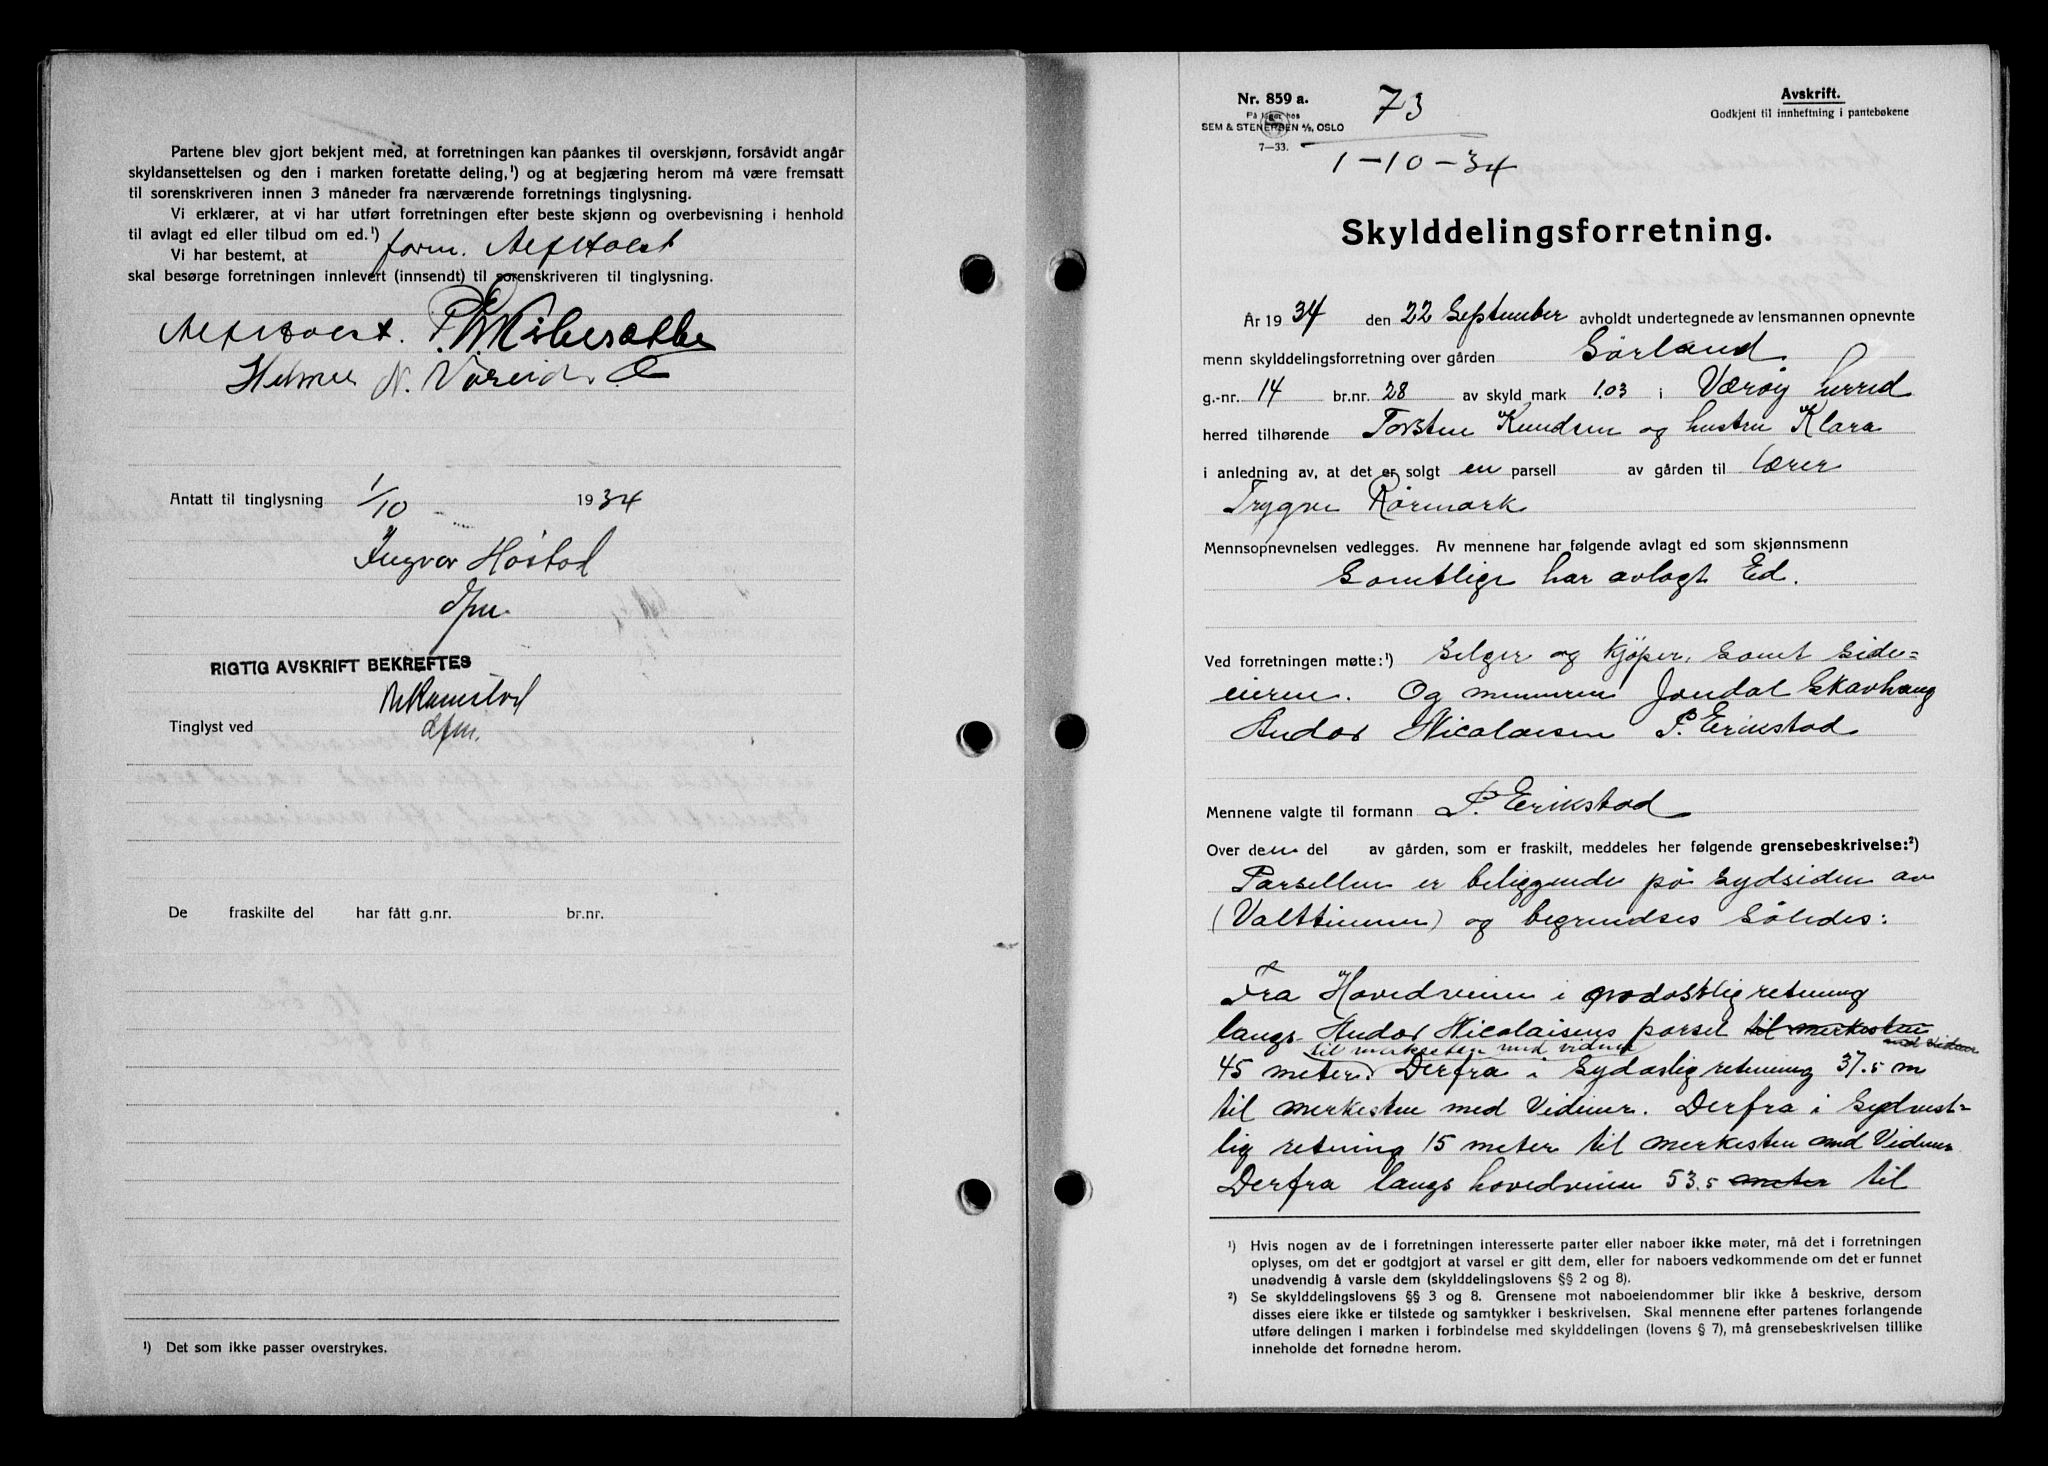 Partene blev gjort bekjent med, at forretningen kan påankes til overskjønn, forsåvidt angår
skyldansettelsen og den i marken foretatte deling,¹) og at begjæring herom må være fremsatt
til sorenskriveren innen 3 måneder fra nærværende forretnings tinglysning.
Vi erklærer, at vi har utført forretningen efter beste skjønn og overbevisning i henhold
til avlagt ed eller tilbud om ed.¹)
Vi har bestemt, at form.
skal besørge forretningen innlevert (innsendt) til sorenskriveren til tinglysning.
Helmer N.
Antatt til tinglysning 1/10 1934
Ingvar Høstad
RIGTIG AVSKRIFT BEKREFTES
Tinglyst ved
De fraskilte del har fått g.nr. br.nr.
¹) Det som ikke passer overstrykes.
Nr. 859 a.
På lager hos
SEM & STENERSEN A/S, OSLO
7—33.
73
1-10-34
Avskrift.
Godkjent til innheftning i pantebøkene
Skylddelingsforretning.
År 1934 den 22 September avholdt undertegnede av lensmannen opnevnte
menn skylddelingsforretning over gården Sørland
g.-nr. 14 br.nr. 28 av skyld mark 1.03 i Værøy herred
herred tilhørende Torsten Knudsen og hustru Klara
i anledning av, at det er solgt en parsell av gården til lærer
Trygve Rørmark
Mennsopnevnelsen vedlegges. Av mennene har følgende avlagt ed som skjønnsmenn
Samtlige har avlagt Ed.
Ved forretningen møtte:¹) Selger og Kjøper, samt Side-
eieren. Og mennene Jendal Skavhaug
Andor Nicolaisen P. Erikstad
Mennene valgte til formann P. Erikstad
Over den del av gården, som er fraskilt, meddeles her følgende grensebeskrivelse:²)
Parsellen er beliggende på Sydsiden av
(Valttinnen) og begrendses Således:
Fra Hovedveien i nordøstlig retning
langs Andor Nicolaisens parsel til merkesten
med vidner
til merkesten med vidner
45 meter. Derfra i Sydøslig retning 37.5 m
til merkesten med Vidner. Derfra i Sydvest-
lig retning 15 meter til merkesten med Vidner
Derfra langs hovedveien 53.5 meter til
¹) Hvis nogen av de i forretningen interesserte parter eller naboer ikke møter, må det i forretningen
oplyses, om det er godtgjort at varsel er gitt dem, eller for naboers vedkommende om det er funnet
unødvendig å varsle dem (skylddelingslovens §§ 2 og 8).
²) Se skylddelingslovens §§ 3 og 8. Grensene mot naboeiendommer blir ikke å beskrive, dersom
disses eiere ikke er tilstede og samtykker i beskrivelsen. Skal mennene efter partenes forlangende
utføre delingen i marken i forbindelse med skylddelingen (lovens § 7), må grensebeskrivelsen tillike
inneholde det fornødne herom.